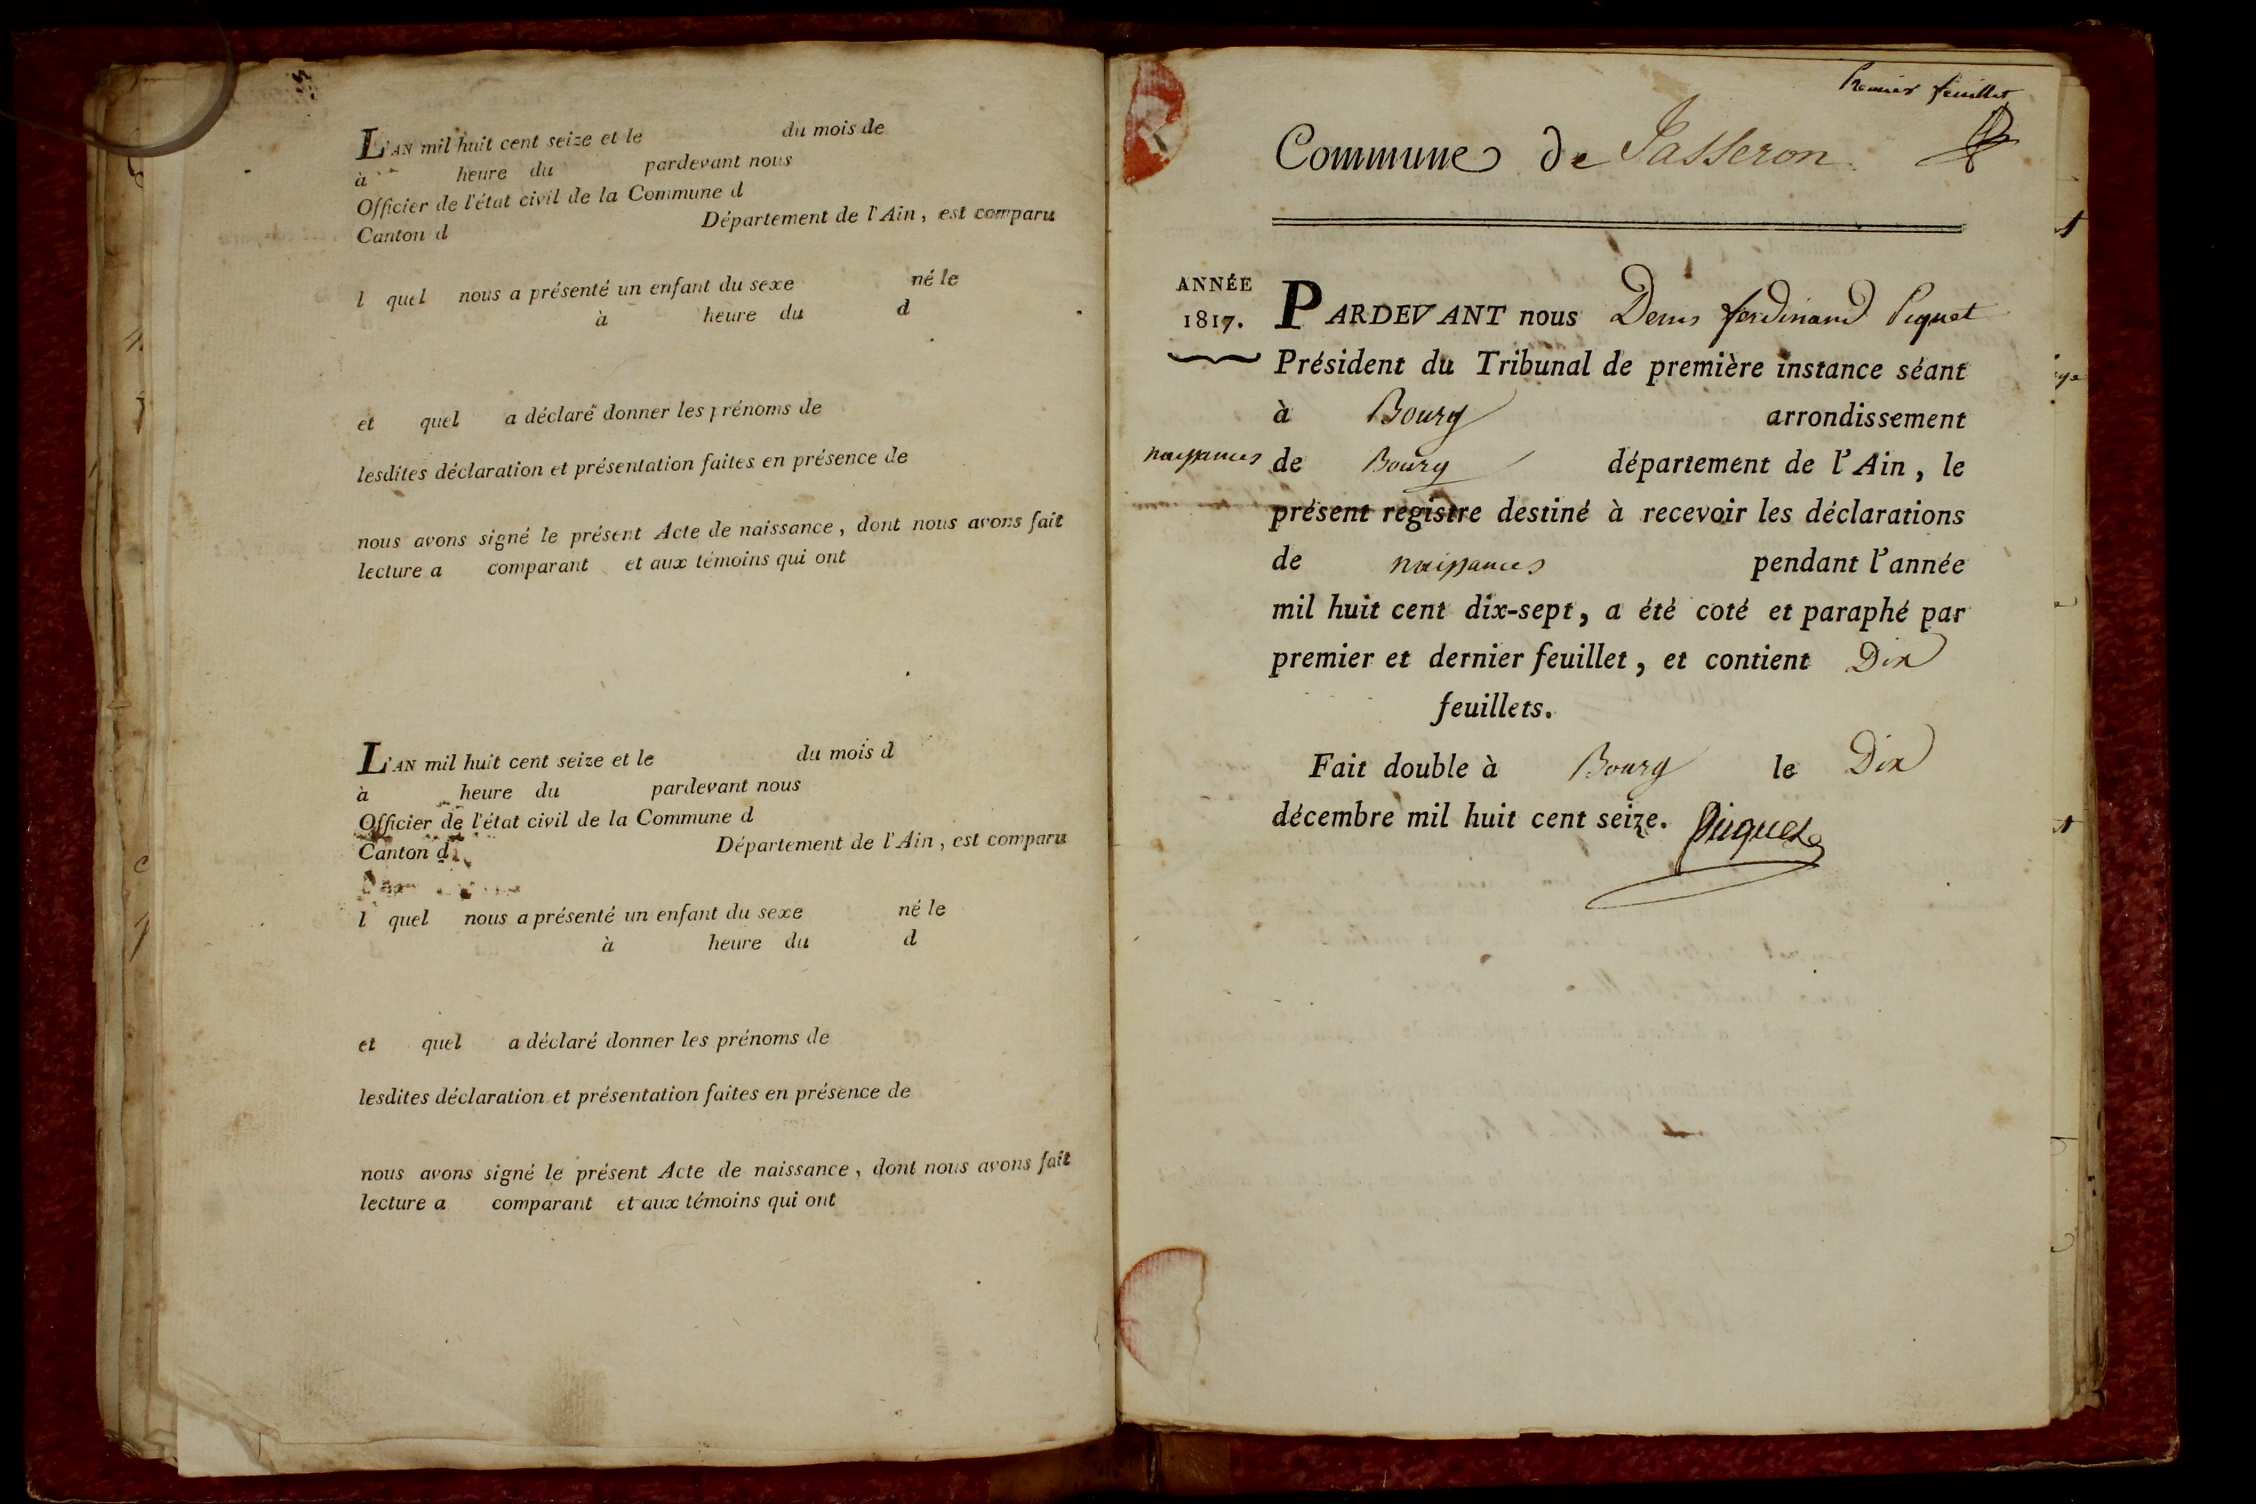 L'AN mil huit cent seize et le du mois de
à heure du pardevant nous
Officier de l'état civil de la Commune d
Canton d Département de l'Ain, est comparu
l quel nous a présenté un enfant du sexe né le
à heure du d
et quel a déclaré donner les prénoms de
lesdites déclaration et présentation faites en présence de
nous avons signé le présent Acte de naissance, dont nous avons fait
lecture a comparant et aux témoins qui ont
L'AN mil huit cent seize et le du mois d
à heure du pardevant nous
Officier de l'état civil de la Commune d
Canton d Département de l'Ain, est comparu
l quel nous a présenté un enfant du sexe né le
à heure du d
et quel a déclaré donner les prénoms de
lesdites déclaration et présentation faites en présence de
nous avons signé le présent Acte de naissance, dont nous avons fait
lecture a comparant et aux témoins qui ont
Premier feuillet
Commune de Jasseron
ANNÉE
1817.
naissances
PARDEVANT nous Denis ferdinand Piquet
Président du Tribunal de première instance séant
à Bourg arrondissement
de Bourg département de l'Ain, le
présent registre destiné à recevoir les déclarations
de naissances pendant l'année
mil huit cent dix-sept, a été coté et paraphé par
premier et dernier feuillet, et contient Dix
feuillets.
Fait double à Bourg le Dix
décembre mil huit cent seize. Piquet